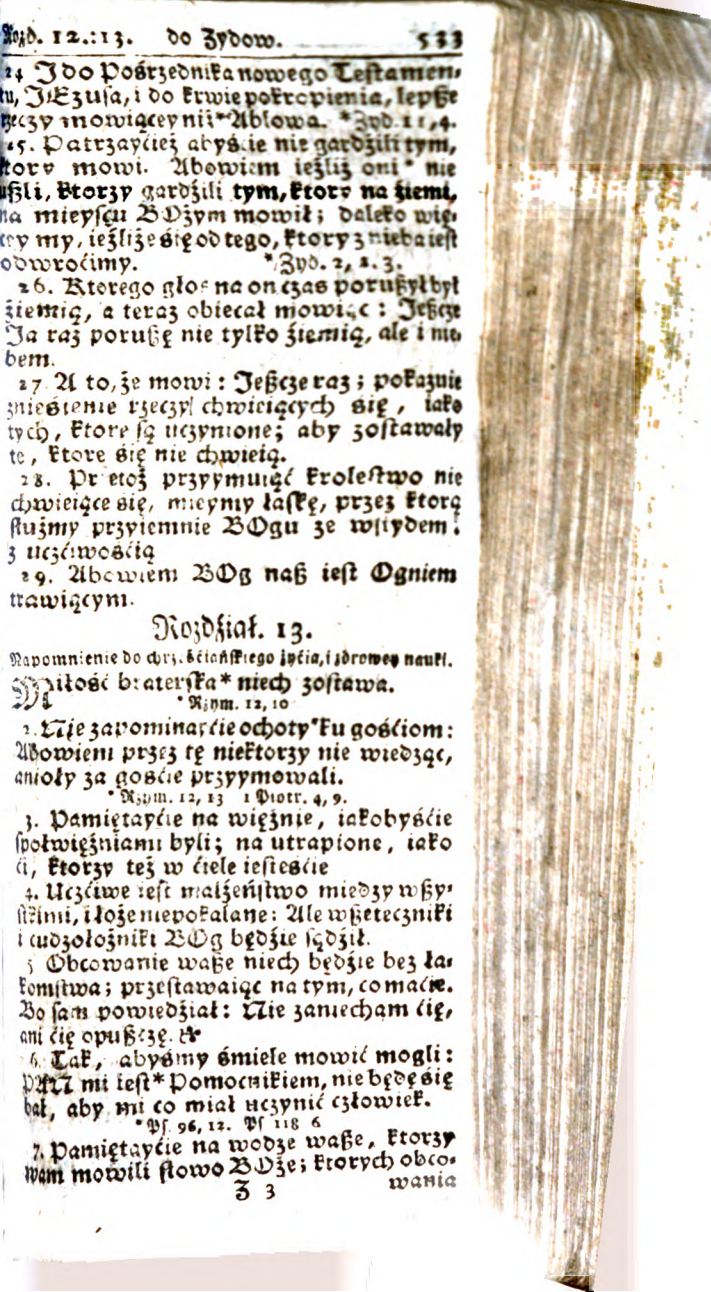 Rozd. 12.:13. do Zydow. 533
24 I do Pośrzednika nowego Testamen-
tu, JEzusa, i do krwie pokropienia, lepße
rzeczy mowiącey niż* Ablowa. *Zyd 11,4.
25. Patrzayćież abyśćie nie gardzili tym,
ktory mowi. Abowiem ieźliż oni* nie
ußli, ktorzy gardźili tym, ktory na źiemi,
na mieyscu BOżym mowił; daleko wię-
cey my, ieźliże się od tego, ktory z nieba iest
odwroćimy. *Zyd. 2, 2. 3.
26. Ktorego głos na on czas porußył był
źiemią, a teraz obiecał mowiąc: Jeßcze
Ja raz porußę nie tylko źiemią, ale i nie-
bem.
27 A to, że mowi: Jeßcze raz; pokazuie
znieśienie rzeczy chwieiących się, iako
tych, ktore są uczynione; aby zostawały
te, ktore się nie chwieią.
28. Przetoż przyymuiąć krolestwo nie
chwieiące się, mieymy łaskę, przez ktorą
służmy przyiemnie BOgu ze wstydem i
z uczćiwośćią
29. Abowiem BOg naß iest Ogniem
trawiącym.
Rozdźiał. 13.
Napomnienie do chrześćiańskiego życia, i zdrowey nauki.
Miłość braterska* niech zostawa.
* Rzym. 12, 10
2. Nie zapominayćie ochoty* ku gośćiom:
Abowiem przez tę niektorzy nie wiedząc,
anioły za gośćie przyymowali.
* Rzym. 12, 13 1 Piotr. 4, 9.
3. Pamiętayćie na więźnie, iakobyśćie
społwięźniami byli; na utrapione, iako
ći, ktorzy też w ćiele iesteśćie
4. Uczćiwe iest małżeństwo miedzy wßy-
stkimi, i łoże niepokalane: Ale wßeteczniki
i cudzołożniki BOg będźie sądźił.
5 Obcowanie waße niech będźie bez ła-
komstwa; przestawaiąc na tym, co maćie.
Bo sam powiedźiał: Nie zaniecham ćię,
ani ćię opußczę.
6. Tak, abyśmy śmiele mowić mogli:
PAN mi iest* Pomocnikiem, nie będę się
bał, aby mi co miał uczynić człowiek.
* Ps. 96, 12. Ps 118 6
7. Pamiętayćie na wodze waße, ktorzy
wam mowili słowo BOże; ktorych obco-
Z 3 wania